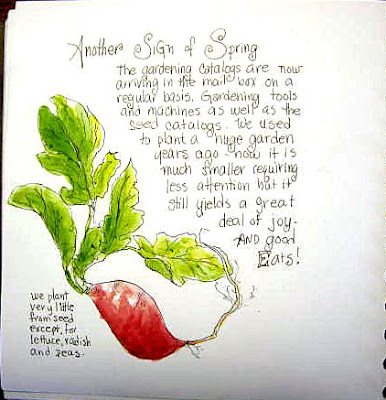 Another Sign of Spring
The gardening catalogs are now
arriving in the mail box on a
regular basis. Gardening tools
and machines as well as the
seed catalogs. We used
to plant a huge garden
years ago - now it is
much smaller requiring
less attention but it
still yields a great
deal of joy.
AND good
Eats!
we plant
very little
from seed
except, for
lettuce, radish
and peas.